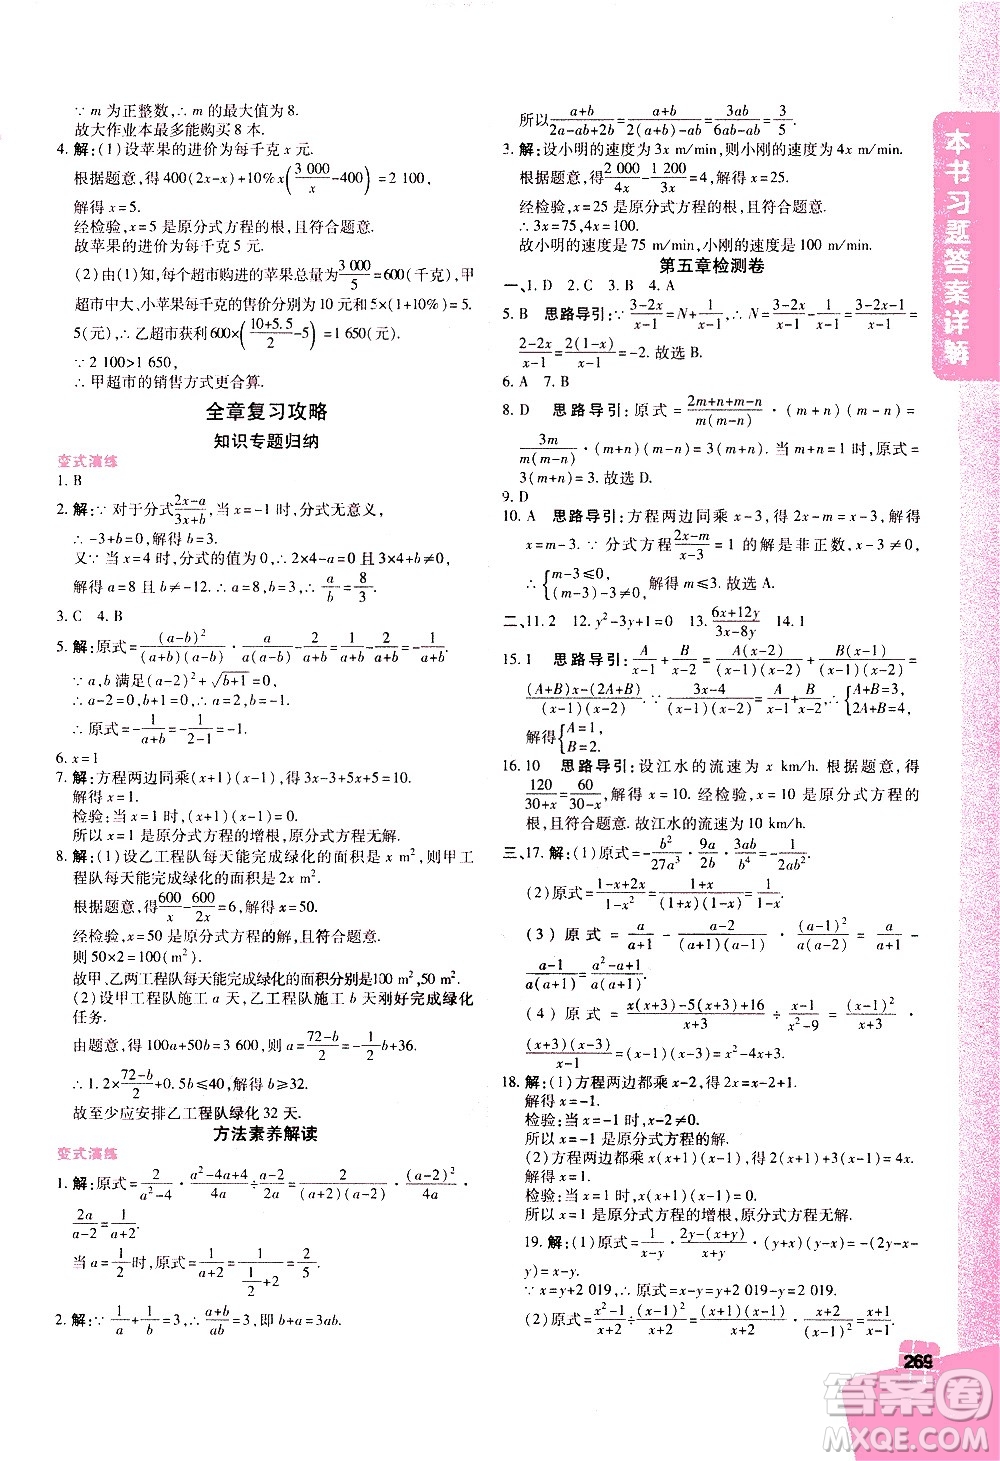 ∵ m 为正整数,∴ m 的最大值为 8.
故大作业本最多能购买 8 本.
4. 解:(1)设苹果的进价为每千克 x 元.
根据题意,得 400(2x-x)+10%x(3 000/x-400)=2 100,
解得 x=5.
经检验,x=5 是原分式方程的解,且符合题意.
故苹果的进价为每千克 5 元.
(2)由(1)知,每个超市购进的苹果总量为3 000/5=600(千克),甲
超市中大、小苹果每千克的售价分别为 10 元和 5.5 元.
5(元),∴ 乙超市获利600×((10+5.5)/2-5)=1 650(元).
∵ 2 100>1 650,
∴ 甲超市的销售方式更合算.
全章复习攻略
知识专题归纳
变式演练
1. B
2. 解:∵ 对于分式(2x-a)/(3x+b),当 x=-1 时,分式无意义,
∴ -3+b=0,∴ b=3.
又∵ 当 x=4 时,分式的值为 0,∴ 8-a=0,12+b≠0,
解得 a=8 且 b≠-12.∴ a/b=8/3.
3. C 4. B
5. 解:原式=(a-b)²/((a+b)(a-b))·a/(a-b)-2/(a+b)=a/(a+b)-2/(a+b)
∵ a,b 满足(a-2)²+√(b+1)=0,
∴ a-2=0,b+1=0,∴ a=2,b=-1.
∴ 原式=-1/(a+b)=-1/(2-1)=-1.
6. x=1
7. 解:方程两边同乘(x+1)(x-1),得 2(x-1)+3(x+1)=6,
解得 x=1.
检验:当 x=1 时,(x+1)(x-1)=0.
所以 x=1 是原分式方程的增根,原分式方程无解.
8. 解:(1)设乙工程队每天能完成绿化的面积是 x m²,则甲工
程队每天能完成绿化的面积是 2x m².
根据题意,得600/x-600/2x=6,解得 x=50.
经检验,x=50 是原分式方程的解,且符合题意.
则 50×2=100(m²).
故甲、乙两工程队每天能完成绿化的面积分别是100 m²,50 m².
(2)设甲工程队施工 a 天,乙工程队施工 b 天刚好完成绿化
任务.
由题意,得 100a+50b=3 600,则 a=(72-b)/2=-1/2b+36.
∴ 1.2×(72-b)/2+0.5b≤40,解得 b≥32.
故至少应安排乙工程队绿化 32 天.
方法素养解读
变式演练
1. 解:原式=2/(a²-4)·(a²-4a+4)/4a÷1/a=2/((a+2)(a-2))·(a-2)²/4a·
2a/(a-2)=1/(a+2).
当 a=1/2时,原式=1/(a+2)=1/(1/2+2)=2/5.
2. 解:∵ 1/a+1/b=3,∴ (a+b)/ab=3,即 b+a=3ab.
所以(a+b)/(2a-ab+2b)=(a+b)/(2(a+b)-ab)=3ab/(6ab-ab)=3/5.
3. 解:设小明的速度为 3x m/min,则小刚的速度为 4x m/min,
根据题意,得2 000/4x-1 650/3x=4,解得 x=25.
经检验,x=25 是原分式方程的根,且符合题意.
∴ 3x=75,4x=100.
故小明的速度是 75 m/min,小刚的速度是 100 m/min.
第五章检测卷
一、1. D 2. C 3. B 4. A
5. B 思路导引:∵ (3-2x)/(x-1)=N+1/(x-1),∴ N=(3-2x)/(x-1)-1/(x-1)=
(2-2x)/(x-1)=2(1-x)/(x-1)=-2.故选 B.
6. A 7. B
8. D 思路导引:原式=(2m+n+m-n)/(m(m-n))·(m+n)(m-n)=
3m/(m(m-n))·(m+n)(m-n)=3(m+n).当 m+n=1 时,原式=
3(m+n)=3.故选 D.
9. D
10. A 思路导引:方程两边同乘 x-3,得 2x-m=x-3,解得
x=m-3.∵ 分式方程(2x-m)/(x-3)=1 的解是非正数,x-3≠0,
∴ {m-3≤0,(m-3)-3≠0,解得 m≤3.故选 A.
二、11. 2 12. y²-3y+1=0 13. (6x+12y)/(3x-8y) 14. 1
15. 1 思路导引:A/(x-1)+B/(x-2)=A(x-2)/((x-1)(x-2))+B(x-1)/((x-1)(x-2))=
((A+B)x-(2A+B))/((x-1)(x-2)).∵ (3x-4)/((x-1)(x-2))=A/(x-1)+B/(x-2),∴{A+B=3,2A+B=4,
解得{A=1,B=2.
16. 10 思路导引:设江水的流速为 x km/h.根据题意,得
120/(30+x)=60/(30-x),解得 x=10.经检验,x=10 是原分式方程的
根,且符合题意.故江水的流速为 10 km/h.
三、17. 解:(1)原式=-b²/27a³·9a/2b·3ab/b⁴=-1/2ab².
(2)原式=(1-x+2x)/(1-x²)=(1+x)/((1+x)(1-x))=1/(1-x).
(3)原式=a/(a+1)-(a-2)/((a+1)(a-1))·(a-1)²/(a(a-2))=a/(a+1)-
(a-1)/(a(a+1))=(a²-a+1)/(a(a+1)).
(4)原式=(x(x+3)-5(x+3)+16)/(x+3)÷(x-1)/(x²-9)=(x-1)²/(x+3)·
(x+3)(x-3)/(x-1)=(x-1)(x-3)=x²-4x+3.
18. 解:(1)方程两边都乘 x-2,得2x=x-2+1.
解得 x=-1.
检验:当 x=-1 时,x-2≠0.
所以 x=-1 是原分式方程的解.
(2)方程两边都乘(x+1)(x-1),得 2(x-1)+2(x+1)=4x.
解得 x=1.
检验:当 x=1 时,(x+1)(x-1)=0.
所以 x=1 是原分式方程的增根,原分式方程无解.
19. 解:(1)原式=1/(x-y)·(2y-(x+y))/(x+y)·(y+x)(y-x)=-(y-x)
=x-y.
∵ x=y+2 019,∴ 原式=x-y=y+2 019-y=2 019.
(2)原式=(x²-1)/(x+2)÷(x-1)²/(x+2)=(x-1)(x+1)/(x+2)·(x+2)/(x-1)²=(x+1)/(x-1).
本书习题答案详解
269
答案圈
MXQE.COM